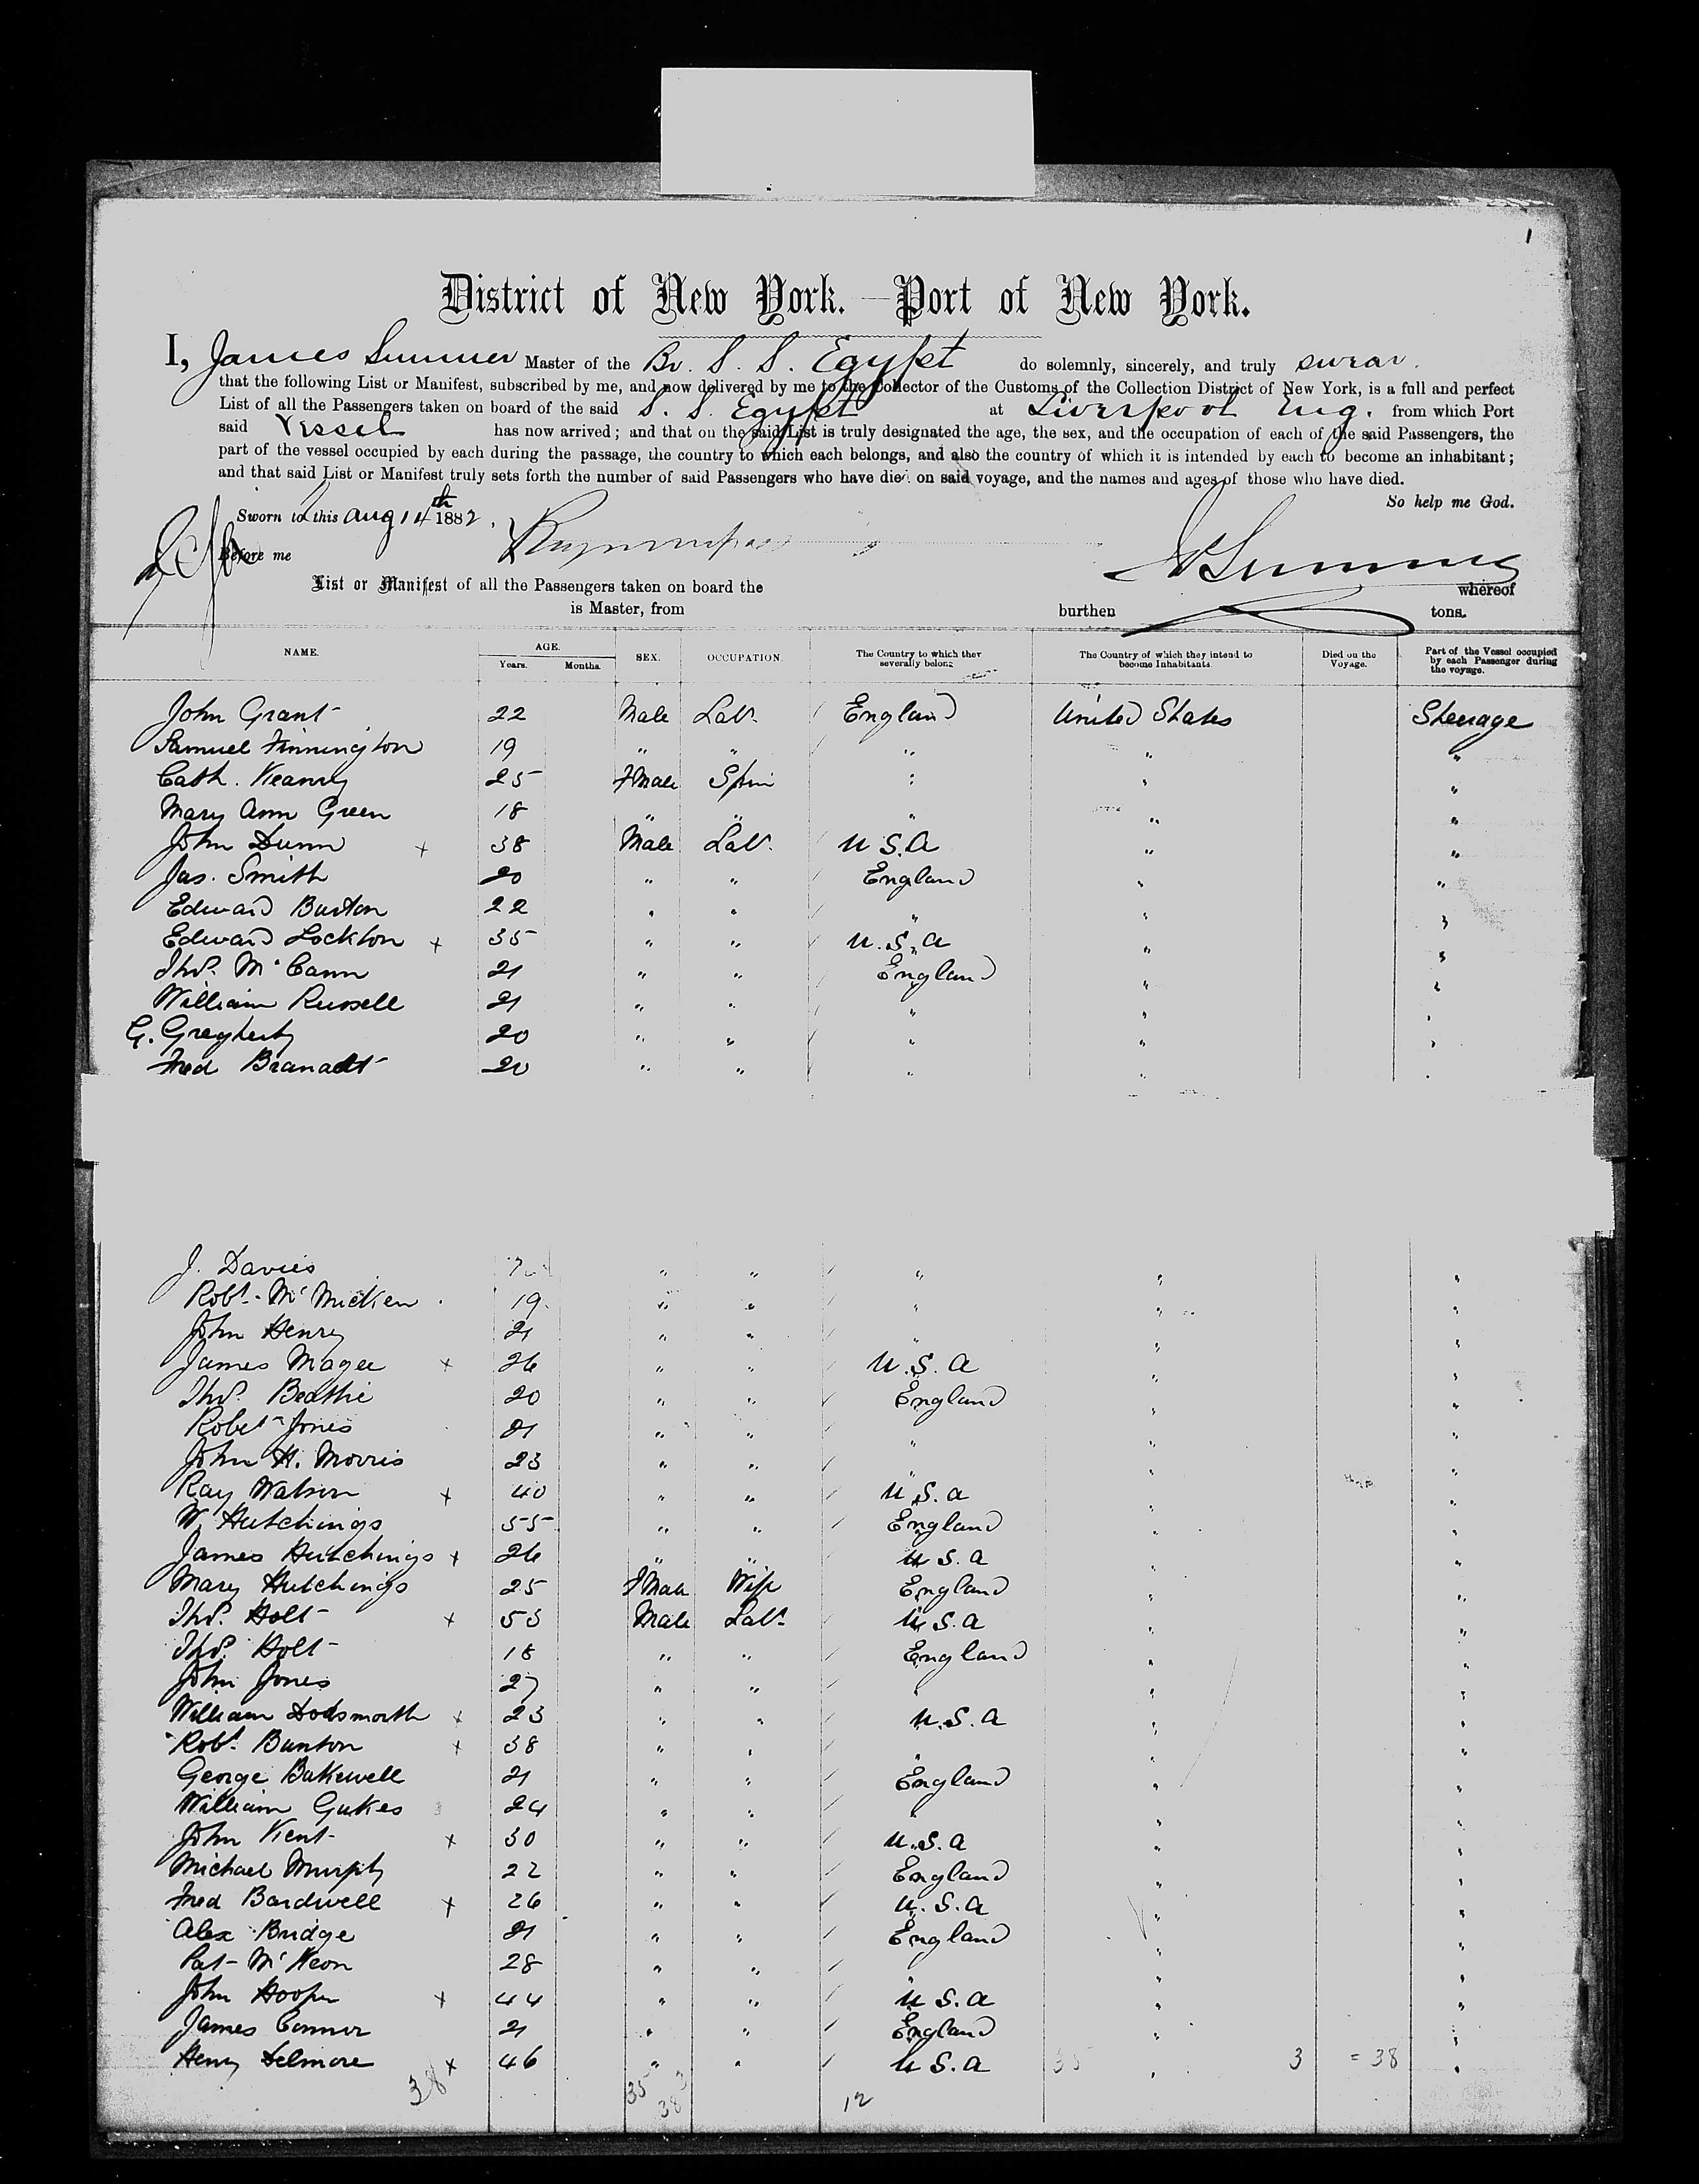 1
District of New York.—Port of New York.
I, James Sumner Master of the Br. S. S. Egypt do solemnly, sincerely, and truly swear
that the following List or Manifest, subscribed by me, and now delivered by me to the Collector of the Customs of the Collection District of New York, is a full and perfect
List of all the Passengers taken on board of the said S. S. Egypt at Liverpool Eng. from which Port
said Vessel has now arrived; and that on the said List is truly designated the age, the sex, and the occupation of each of the said Passengers, the
part of the vessel occupied by each during the passage, the country to which each belongs, and also the country of which it is intended by each to become an inhabitant;
and that said List or Manifest truly sets forth the number of said Passengers who have died on said voyage, and the names and ages of those who have died.
So help me God.
Sworn to this Aug 14th 1882.
Before me
J Sumner
List or Manifest of all the Passengers taken on board the whereof
is Master, from burthen tons.
NAME. AGE. Years. Months. SEX. OCCUPATION. The Country to which they severally belong The Country of which they intend to become Inhabitants. Died on the Voyage. Part of the Vessel occupied by each Passenger during the voyage.
John Grant 22 Male Labr. England United States Steerage
Samuel Finnington 19 " " " " "
Cath. Keanry 25 FMale Spin " " "
Mary Ann Green 18 " " " " "
John Dunn + 38 Male Labr. U.S.A " "
Jas. Smith 20 " " England " "
Edward Burton 22 " " " " "
Edward Lockton + 35 " " U.S.A " "
Thos. McCann 21 " " England " "
William Russell 21 " " " " "
G. 20 " " " " "
Fred Branadt 20 " " " " "
J. Davies " " " " "
Robt. McMicken 19 " " " " "
John Henry 21 " " " " "
James Magee + 26 " " U.S.A " "
Thos. Beattie 20 " " England " "
Robet Jones 21 " " " " "
John H. Morris 23 " " " " "
Ray Watson + 40 " " U.S.A " "
W. Hutchings 55 " " England " "
James Hutchings + 26 " " U.S.A " "
Mary Hutchings 25 FMale Wife England " "
Thos. Holt + 53 Male Labr. U.S.A " "
Thos. Holt 18 " " England " "
John Jones 27 " " " " "
William Dodsmorth + 23 " " U.S.A " "
Robt. Bunton + 38 " " " " "
George Bakewell 21 " " England " "
William Gukes 24 " " " " "
John Kent + 30 " " U.S.A " "
Michael Murphy 22 " " England " "
Fred Bardwell + 26 " " U.S.A " "
Alex Bridge 21 " " England " "
Pat McKeon 28 " " " " "
John Hooper + 44 " " U.S.A " "
James Connor 21 " " England " "
Henry Delmore + 46 " " U.S.A 35 " 3 = 38 "
38 35 3 38 12